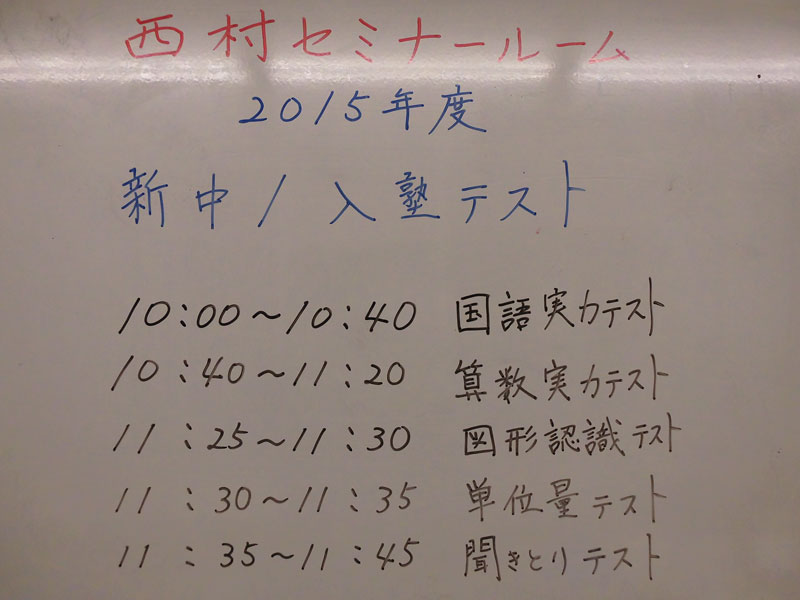 西村セミナールーム
2015年度
新中1 入塾テスト
10:00~10:40 国語実力テスト
10:40~11:20 算数実力テスト
11:25~11:30 図形認識テスト
11:30~11:35 単位量テスト
11:35~11:45 聞きとりテスト